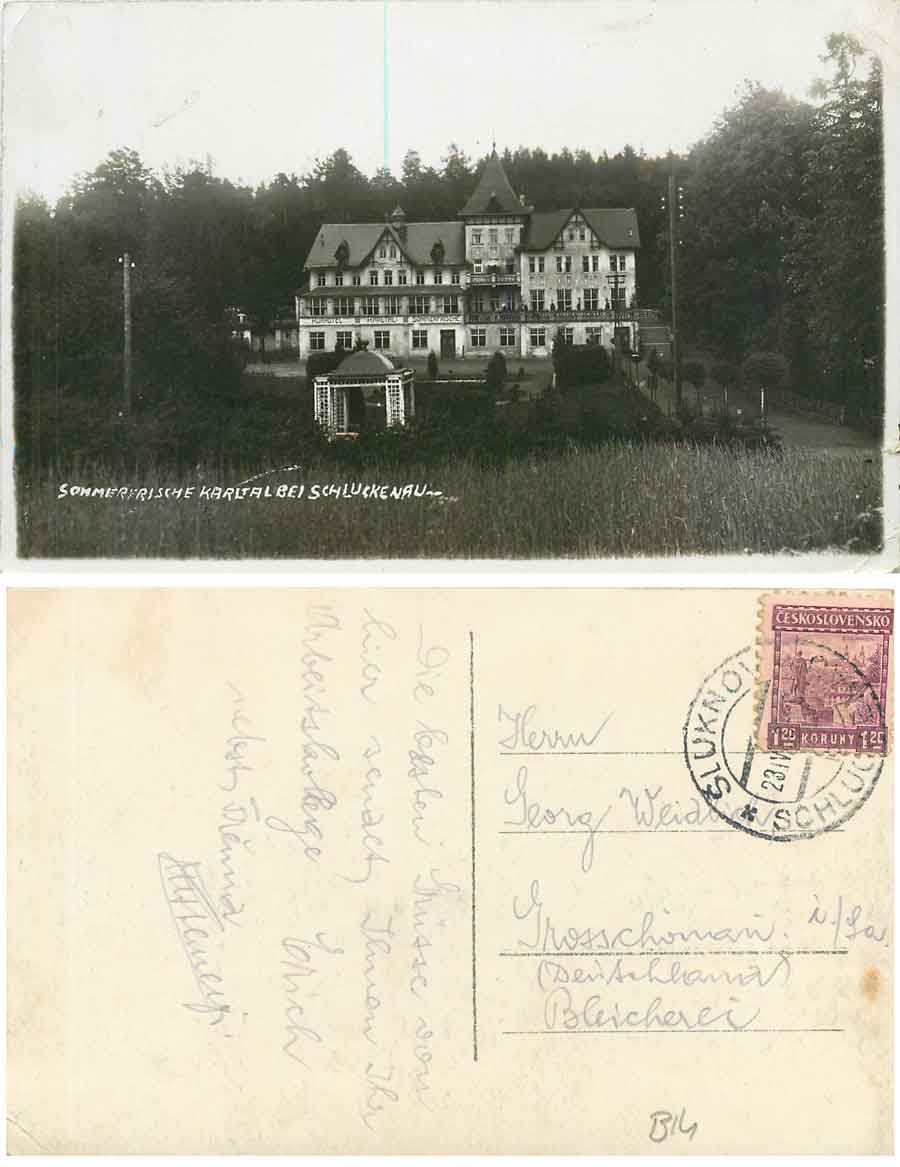 KURHOTEL KARLTAL SOMMERFRISCHE
SOMMERFRISCHE KARLTAL BEI SCHLUCKENAU
ČESKOSLOVENSKO
1.20 KORUNY 1.20
ŠLUKNOV
23 IV
SCHLUC
Die besten Grüsse von
hier sendet, Ihnen Ihr
Erich
nebst
Herrn
Georg
Grosschönau i/Sa
(Deutschland)
Bleicherei
B14